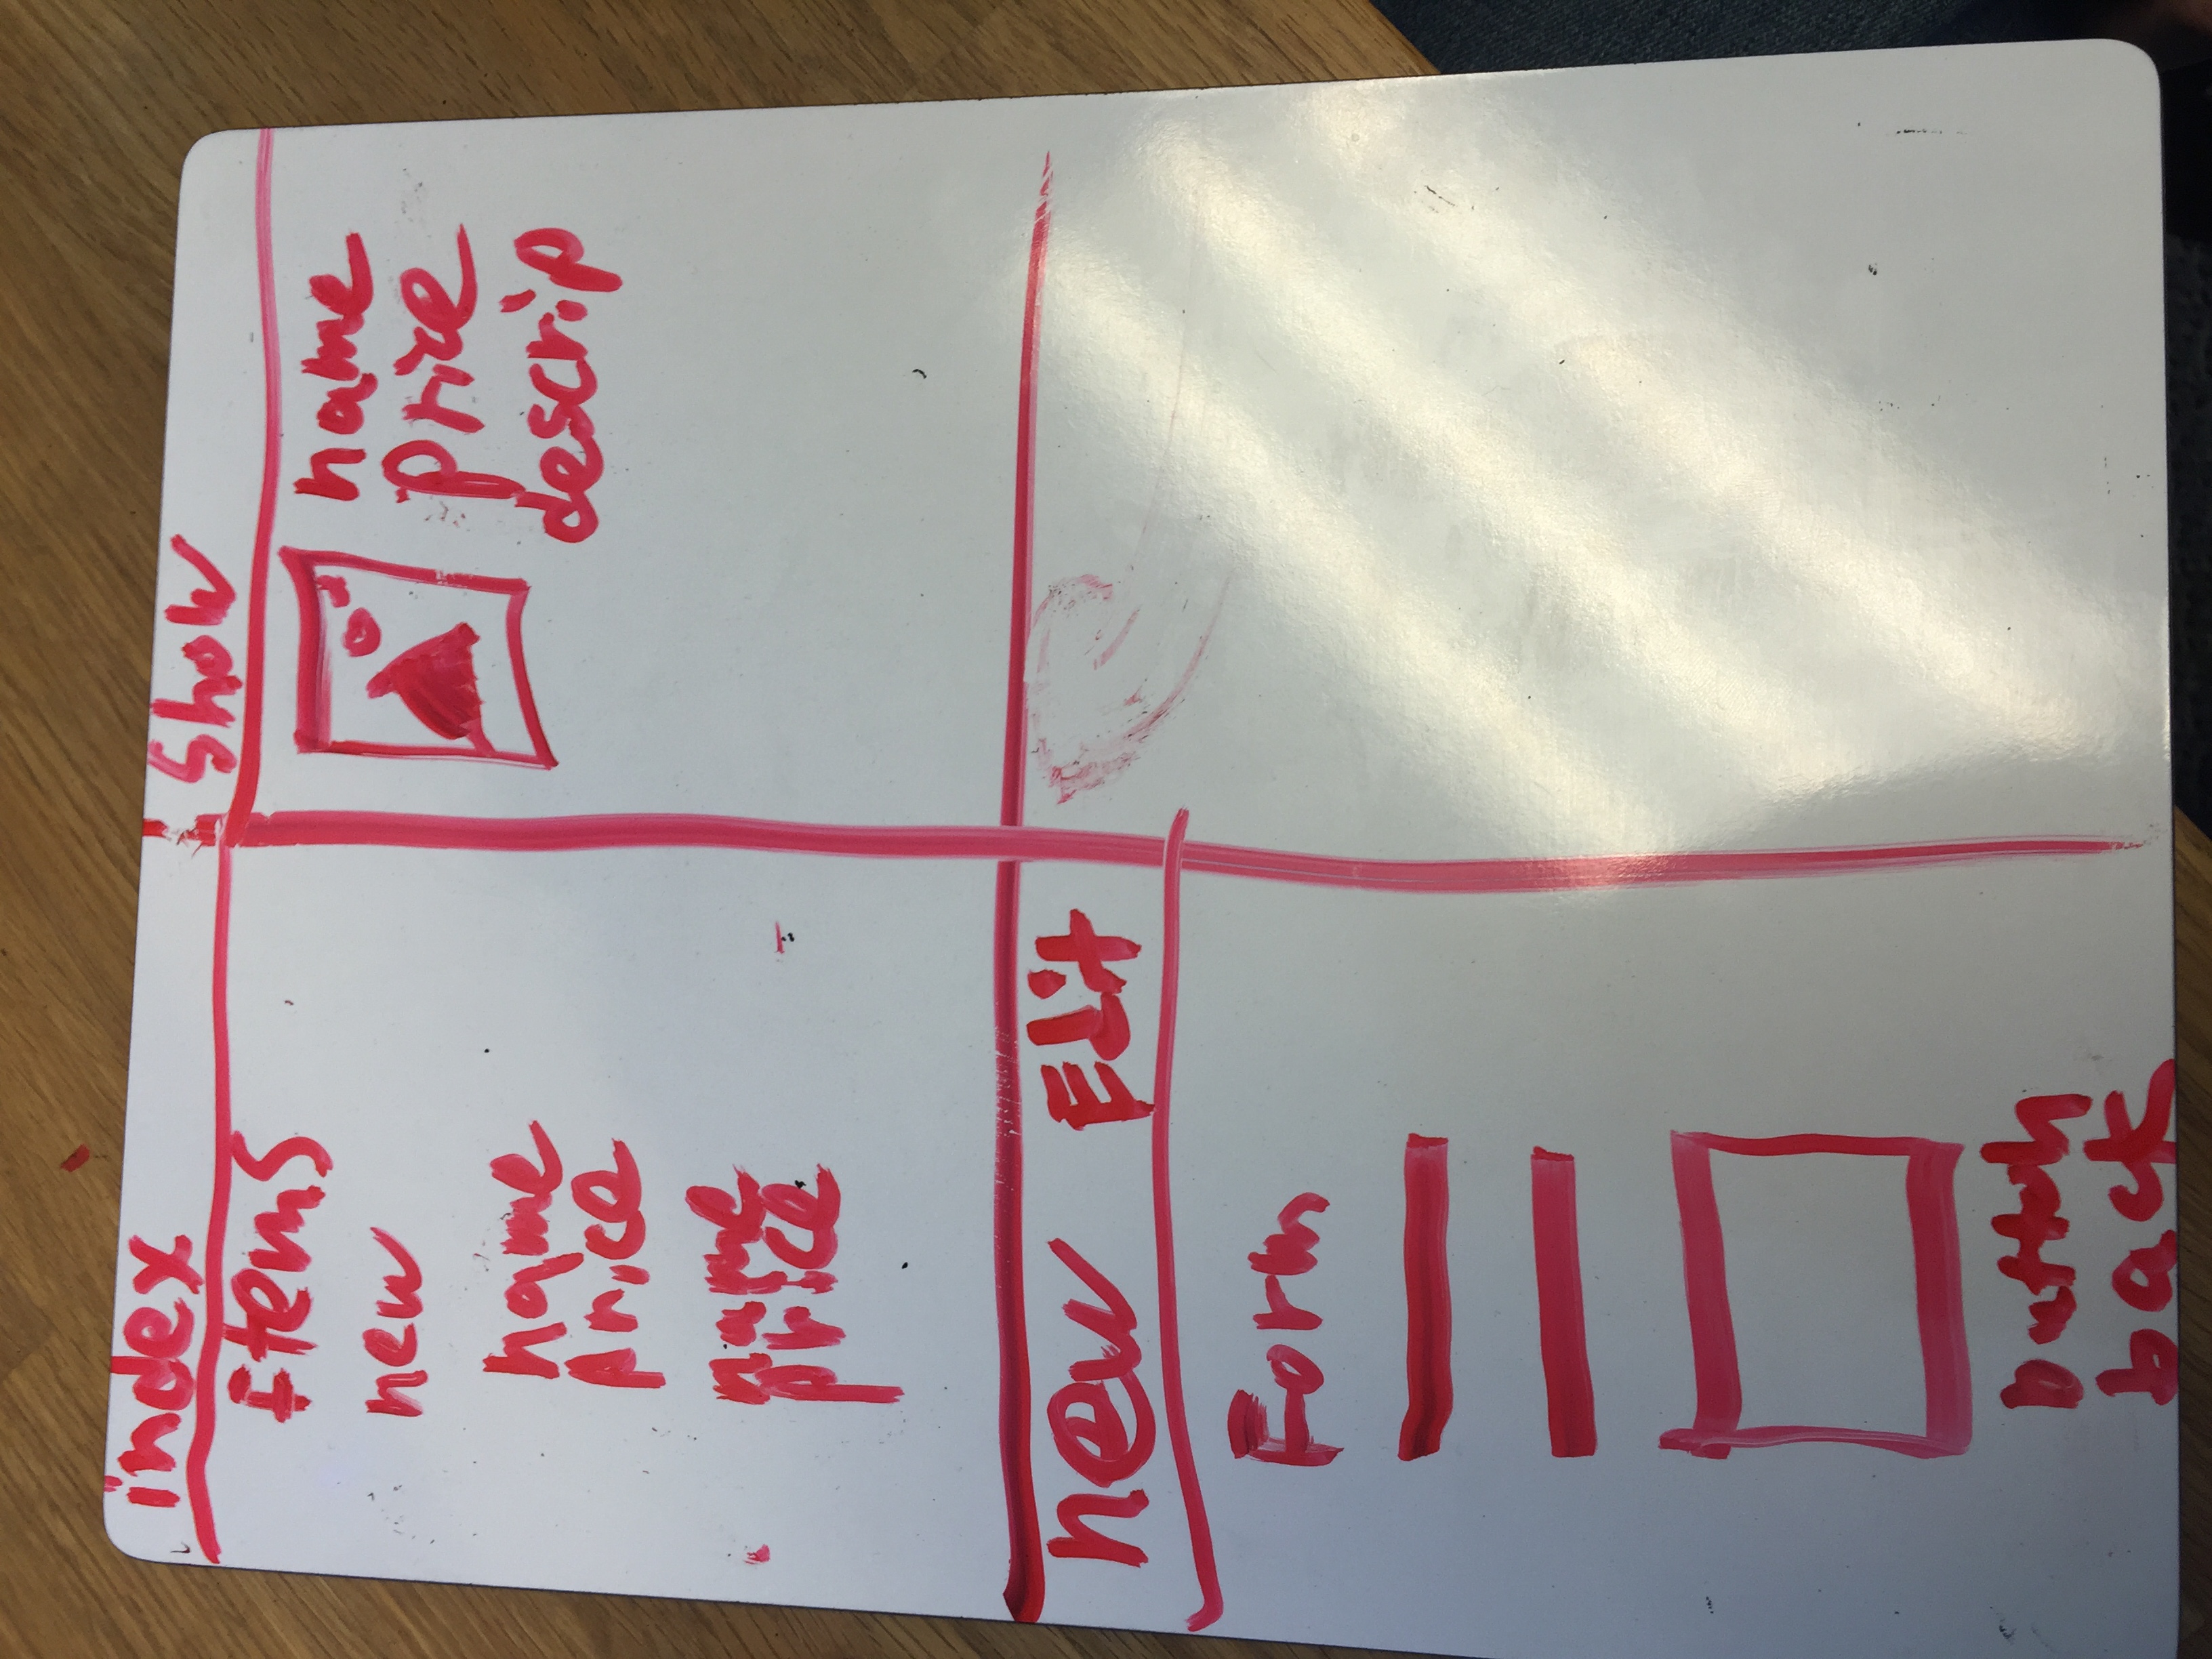 index
Items
new
name
price
name
price
Show
name
price
descrip
new Edit
Form
button
back